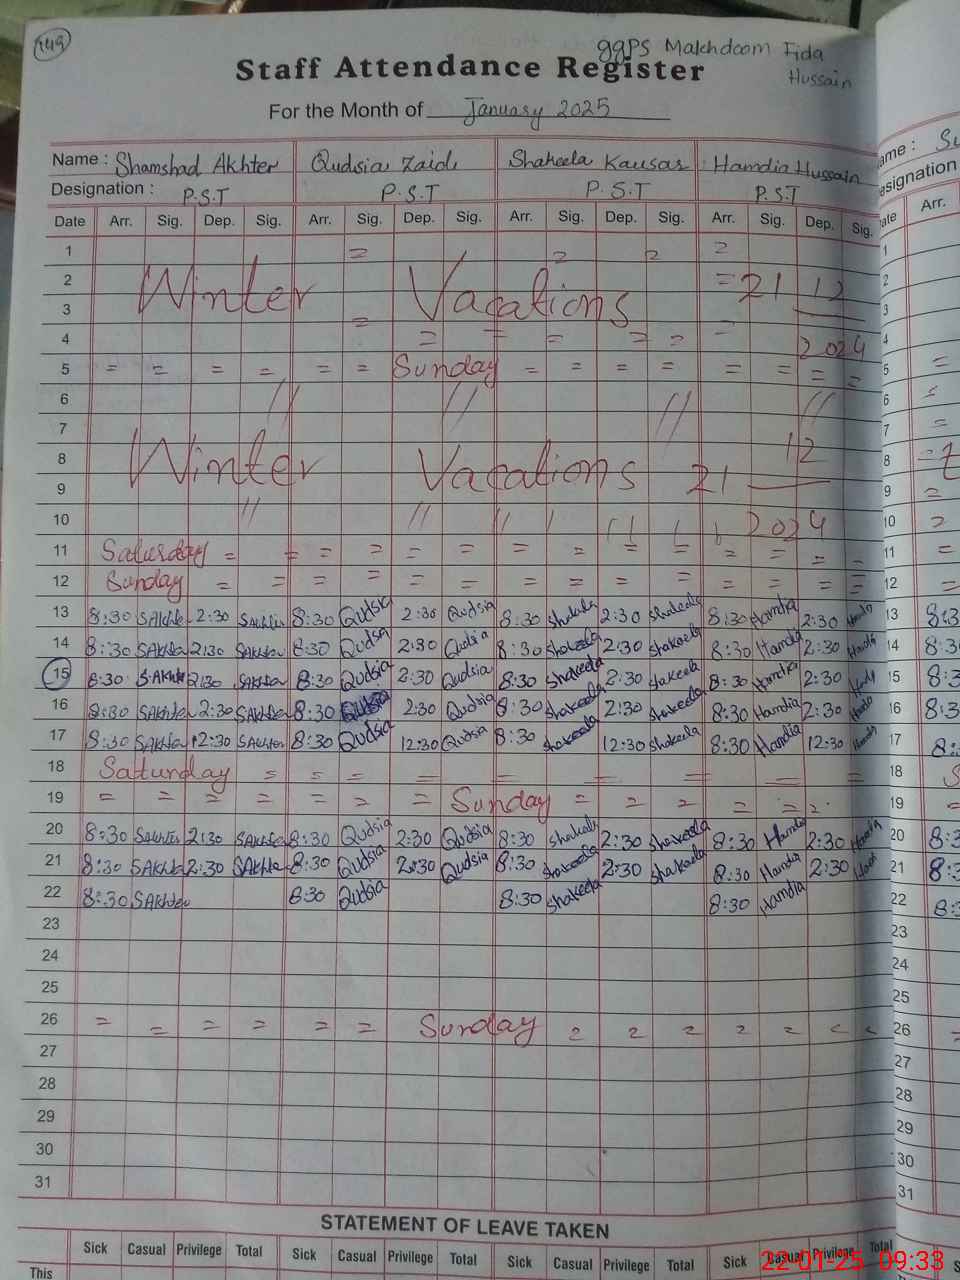 149
GGPS Makhdoom Fida Hussain
Staff Attendance Register
For the Month of January 2025
Name : Shamshad Akhter Qudsia Zaidi Shakeela Kausar Hamdia Hussain
Designation : P.S.T P.S.T P.S.T P.S.T
Date Arr. Sig. Dep. Sig. Arr. Sig. Dep. Sig. Arr. Sig. Dep. Sig. Arr. Sig. Dep. Sig.
1 = = = =
2 Winter Vacations = 21 12
3 =
4 = = = = = = 2024
5 = = = = = = Sunday = = = = = = = =
6 // // // //
7
8 Winter Vacations 21 12
9
10 // // // 2024
11 Saturday = = = = = = = = = = = = = =
12 Sunday = = = = = = = = = = = = =
13 8:30 SAkhter 2:30 SAkhter 8:30 Qudsia 2:30 Qudsia 8:30 Shakeela 2:30 Shakeela 8:30 Hamdia 2:30 Hamdia
14 8:30 SAkhter 2:30 SAkhter 8:30 Qudsia 2:30 Qudsia 8:30 Shakeela 2:30 Shakeela 8:30 Hamdia 2:30 Hamdia
15 8:30 S.Akhter 2:30 SAkhter 8:30 Qudsia 2:30 Qudsia 8:30 Shakeela 2:30 Shakeela 8:30 Hamdia 2:30 Hamdia
16 8:30 SAkhter 2:30 SAkhter 8:30 Qudsia 2:30 Qudsia 8:30 Shakeela 2:30 Shakeela 8:30 Hamdia 2:30 Hamdia
17 8:30 SAkhter 12:30 SAkhter 8:30 Qudsia 12:30 Qudsia 8:30 Shakeela 12:30 Shakeela 8:30 Hamdia 12:30 Hamdia
18 Saturday = = = = = = = = =
19 = = = = = = = Sunday = = = = = =
20 8:30 SAkhter 2:30 SAkhter 8:30 Qudsia 2:30 Qudsia 8:30 Shakeela 2:30 Shakeela 8:30 Hamdia 2:30 Hamdia
21 8:30 SAkhter 2:30 SAkhter 8:30 Qudsia 2:30 Qudsia 8:30 Shakeela 2:30 Shakeela 8:30 Hamdia 2:30 Hamdia
22 8:30 SAkhter 8:30 Qudsia 8:30 Shakeela 8:30 Hamdia
23
24
25
26 = = = = = = Sunday = = = = = = =
27
28
29
30
31
STATEMENT OF LEAVE TAKEN
Sick Casual Privilege Total Sick Casual Privilege Total Sick Casual Privilege Total Sick Casual Privilege Total
This
22-01-25 09:33